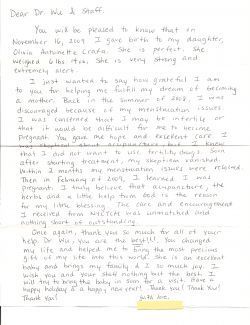 Dear Dr. Wu & Staff,
You will be pleased to know that on
November 16, 2009 I gave birth to my daughter,
Olivia Antonette. She is perfect. She
weighed 6 lbs. She is very strong and
extremely alert.
I just wanted to say how grateful I am
to you for helping me fulfill my dream of becoming
a mother. Back in the Summer of 2008, I was
discouraged because of my menstruation issues
I was concerned that I may be infertile or
that it would be difficult for me to become
pregnant. You gave me hope and excellent care. I
was skeptical about acupuncture, but I knew
that I did not want to use fertility drugs. Soon
after starting treatment, my skepticism vanished.
Within 2 months my menstruation issues were resolved.
Then in February of 2009, I learned I was
pregnant. I truly believe that acupuncture, the
herbs and a little help from God is the reason
for my little blessing. The care and encouragement
I received from was unmatched and
nothing short of outstanding.
Once again, thank you so much for all of your
help. Dr. Wu, you are the best!!! You changed
my life and helped me to bring the most precious
gift of my life into this world. She is an excellent
baby and brings my family & I so much joy. I
wish you and your staff nothing but the best. I
will try to bring the baby in soon for a visit. Have a
happy holiday & a happy new year! Thank you! Thank You!
Thank You!